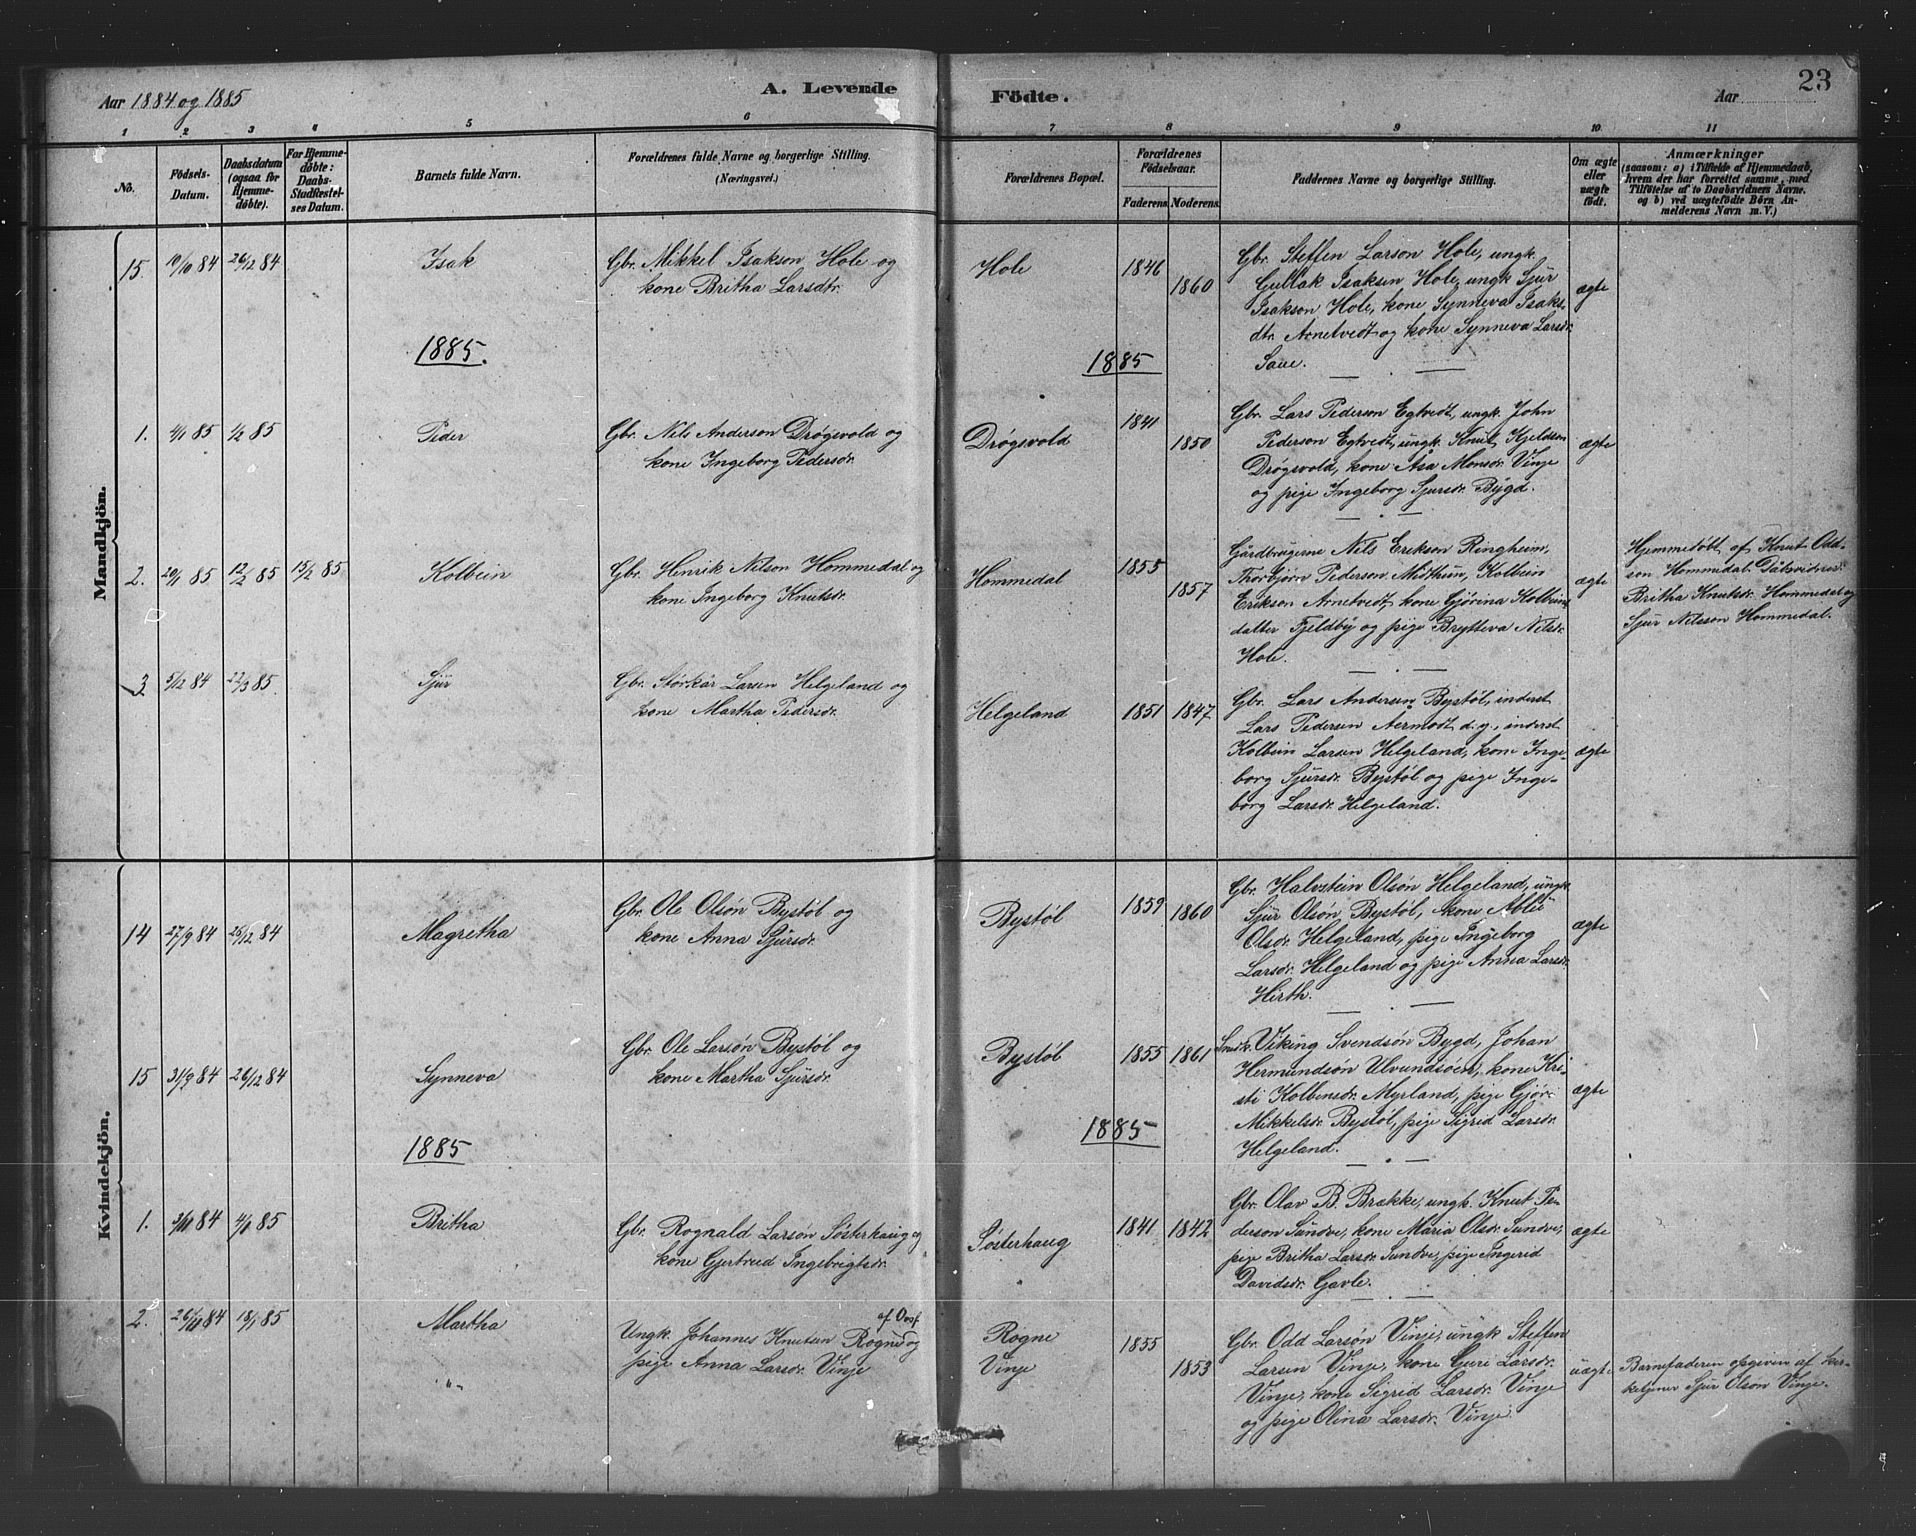 Aar 1884 og 1885
A. Levende
Födte.
Aar
23
1 2 3 4 5 6 7 8 9 10 11
No.
Födsels-
Datum.
Daabsdatum
(ogsaa for
Hjemme-
døbte).
For Hjemme-
døbte:
Daabs-
Stadfæstel-
ses Datum.
Barnets fulde Navn.
Forældrenes fulde Navne og borgerlige Stilling.
(Næringsvei.)
Forældrenes Bopæl.
Forældrenes
Födselsaar.
Faderens. Moderens.
Faddernes Navne og borgerlige Stilling.
Om ægte
eller
uægte
födt.
Anmærkninger
(saasom: a) i Tilfælde af Hjemmedaab,
hvem der har forrettet samme, med
Tilföielse af to Daabsvidners Navne,
og b) ved uægtefödte Börn An-
melderens Navn m. V.)
Mandkjön.
15. 10/10 84 26/12 84
Isak
Gbr. Mikkel Isakson Hole og
kone Britha Larsdtr.
Hole
1846
1860
Gbr. Steffen Larson Hole, ungk.
Gullak Isaksen Hole, ungk Sjur
Isakson Hole, kone Synneva Isaks-
dtr. Arnetvedt og kone Synneva Larsdr.
Saue.
ægte
1885.
1885
1. 4/1 85 1/2 85
Peder
Gbr. Nils Anderson Drøgsvold og
kone Ingeborg Pedersdr.
Drøgsvold
1841
1850
Gbr. Lars Pederson Egtvedt, ungk. John
Pederson Egtvedt, ungk. Knut Kjeldson
Drøgsvold, kone Åsa Monsdr. Vinje
og pige Ingeborg Sjursdr. Bygd.
ægte
2. 20/1 85 12/2 85 15/2 85
Kolbein
Gbr. Henrik Nilson Hommedal og
kone Ingeborg Knutsdr.
Hommedal
1855
1857
Gårdbrugerne Nils Erikson Ringheim,
Thorbjørn Pederson Midthun, Kolbein
Erikson Arnetvedt, kone Gjørina Kolbeins-
datter Fjeldby og pige Brytteva Nilsdr.
Hole.
ægte
Hjemmedøbt af Knut Odd-
son Hommedal. Dåbsvidner:
Britha Knutsdr. Hommedal og
Sjur Nilsson Hommedal.
3. 5/12 84 22/3 85.
Sjur
Gbr. Størkår Larsen Helgeland og
kone Martha Pedersdr.
Helgeland
1851 1847
Gbr. Lars Andersen Bystøl, inderst
Lars Pedersen Aermodt d. y., inderst
Kolbein Larsen Helgeland, kone Inge-
borg Sjursdr. Bystøl og pige Inge-
borg Larsdr. Helgeland.
ægte
Kvindekjön.
14 27/9 84 26/12 84
Magretha
Gbr. Ole Olsön Bystøl og
kone Anna Sjursdr.
Bystøl
1859 1860
Gbr. Halvstein Olsön Helgeland, ungk.
Sjur Olsön Bystøl, kone Ablu
Olsdr. Helgeland, pige Ingeborg
Larsdr. Helgeland og pige Anna Larsdr.
Hirth.
ægte
15 31/9 84 26/12 84
Synneva
Gbr. Ole Larsön Bystøl og
kone Martha Sjursdr.
Bystøl
1855 1861
Smedk. Viking Svendsön Bygd, Johan
Hermundsön Ulvundsöen, kone Kri-
sti Kolbensdr. Myrland, pige Gjör-
Mikkelsdr. Bystøl, pige Sigrid Larsdr.
Helgeland.
ægte
1885
1885
1. 3/11 84 4/1 85
Britha
Gbr. Rognald Larsön Sösterhaug og
kone Gjertrud Ingebrigtsdr.
Sösterhaug
1841 1842
Gbr. Olav B. Brække, ungk. Knut Pe-
derson Sundve, kone Maria Olsdr. Sundve,
pige Britha Larsdr. Sundve, pige Ingerid
Davidsdr. Gavle.
ægte
2. 26/11 84 18/1 85
Martha
Ungk. Johannes Knutsen Rogne af Vosf. og
pige Anna Larsdr. Vinje
"
Rogne
Vinje
1855
1853
Gbr. Odd Larsön Vinje, ungk Steffen
Larsen Vinje, kone Guri Larsdr.
Vinje, kone Sigrid Larsdr. Vinje
og pige Olina Larsdr. Vinje.
uægte
Barnefaderen opgiven af kir-
ketjener Sjur Olsön Vinje.